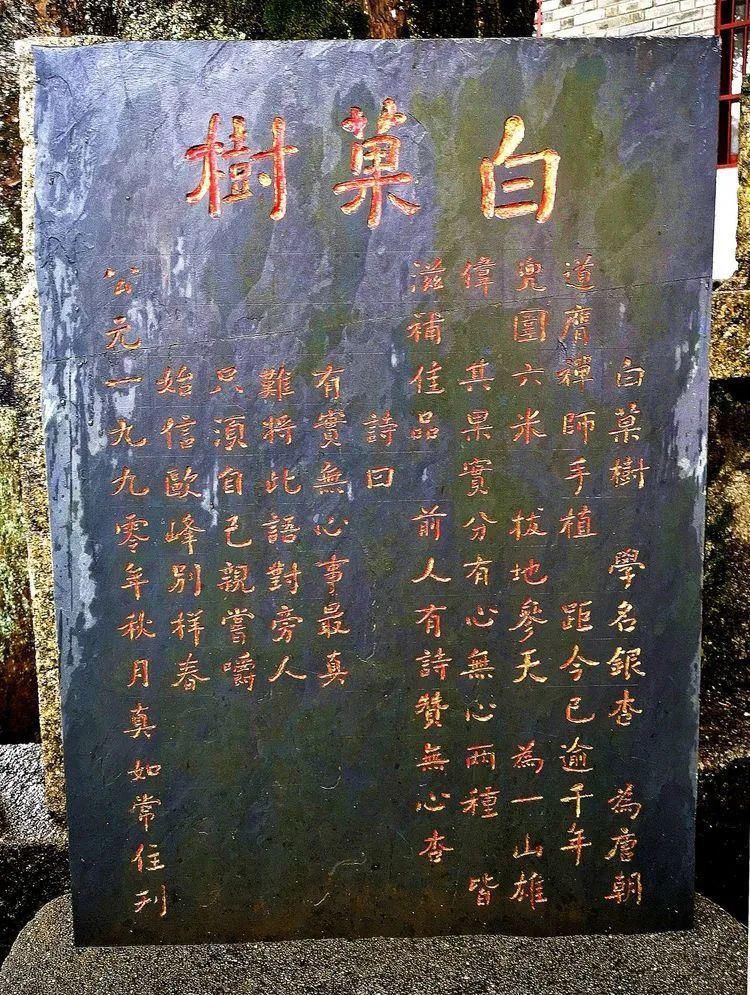 白菓樹
白菓樹 學名銀杏 為唐朝
道膺禪師手植 距今已逾千年
兜圓六米 拔地參天 為一山雄
偉 其果實分有心無心兩種 皆
滋補佳品 前人有詩贊無心杏
詩曰
有實無心事最真
難將此語對旁人
只須自己親嘗嚼
始信歐峰別样春
公元一九九零年秋月真如常住刋